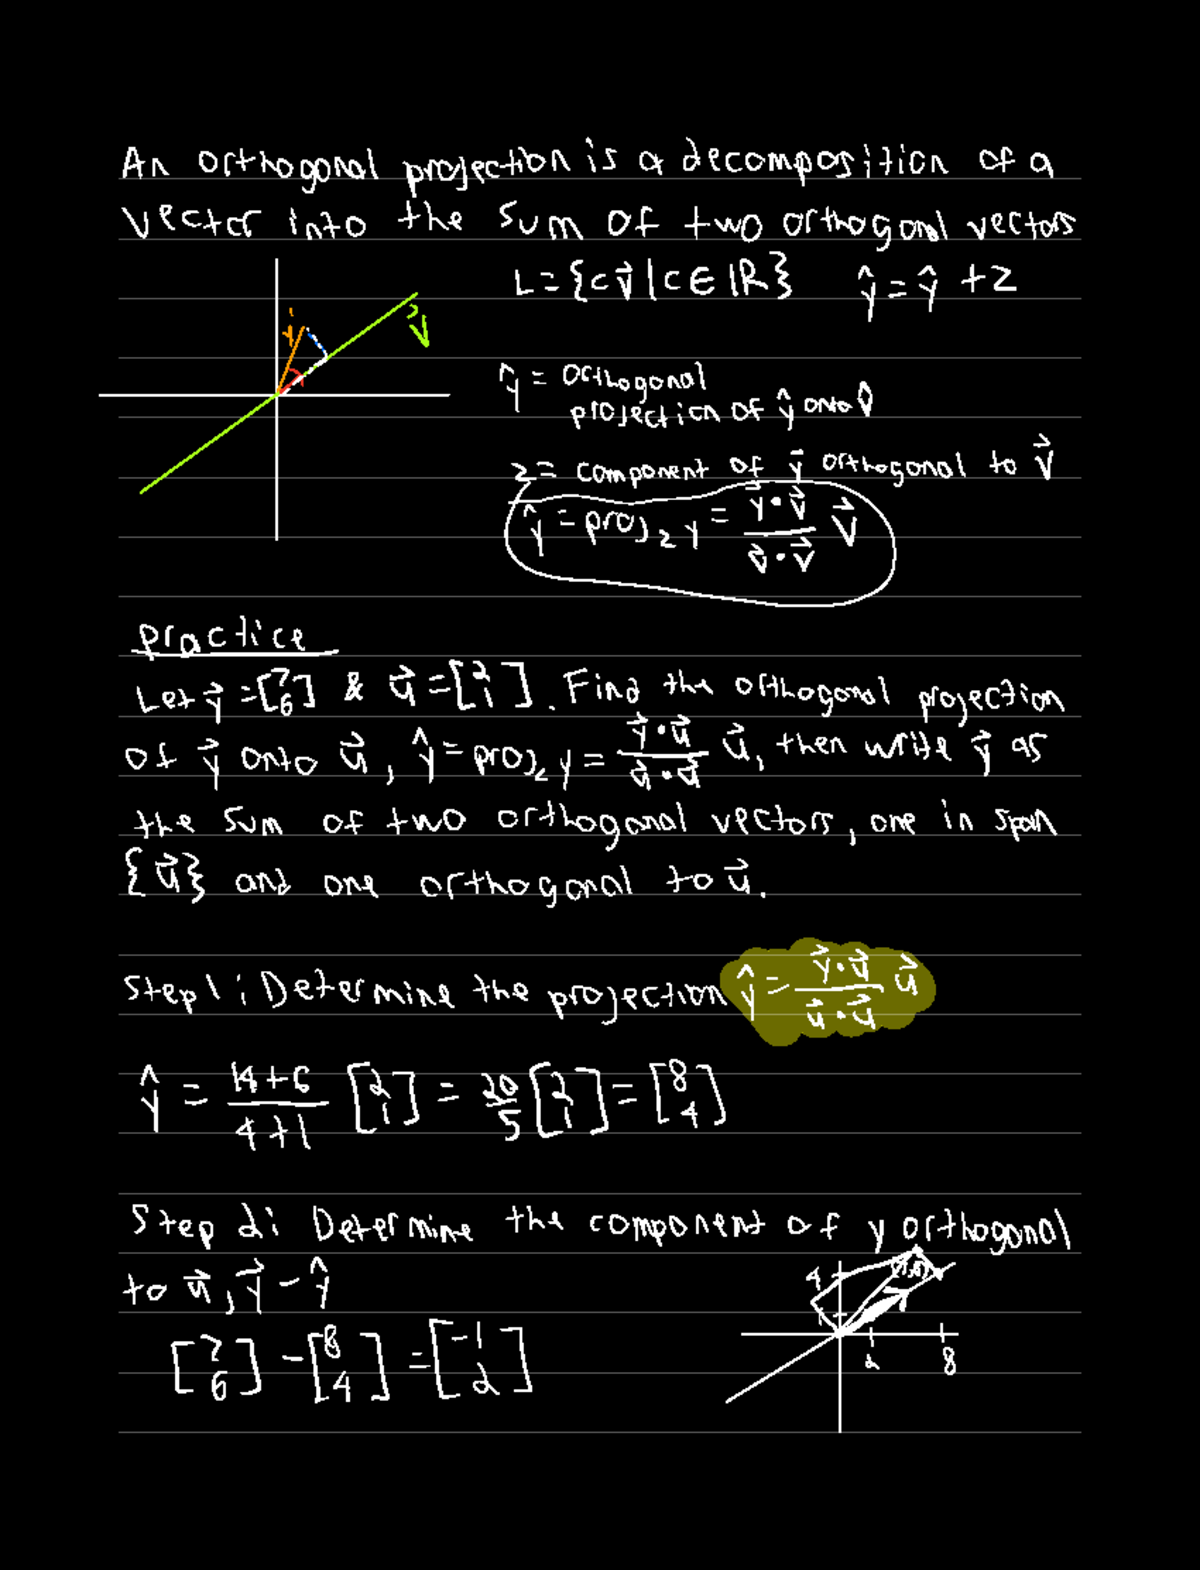 An orthogonal projection is a decomposition of a
vector into the sum of two orthogonal vectors
L = {cv⃗ | c ∈ ℝ} ŷ = ŷ + z
y⃗
v⃗
ŷ = orthogonal
projection of ŷ onto v̂
z = component of y⃗ orthogonal to v⃗
ŷ = proj_L y = (y⃗ · v⃗)/(v⃗ · v⃗) v⃗
practice
Let y⃗ = [7 6] & u⃗ = [2 1]. Find the orthogonal projection
of y⃗ onto u⃗, ŷ = proj_L y = (y⃗ · u⃗)/(u⃗ · u⃗) u⃗, then write y⃗ as
the sum of two orthogonal vectors, one in span
{u⃗} and one orthogonal to u⃗.
Step 1: Determine the projection ŷ = (y⃗ · u⃗)/(u⃗ · u⃗) u⃗
ŷ = (14+6)/(4+1) [2 1] = 20/5 [2 1] = [8 4]
Step 2: Determine the component of y orthogonal
to u⃗, y⃗ - ŷ
[7 6] - [8 4] = [-1 2]
4 (7,6)
1
2 8